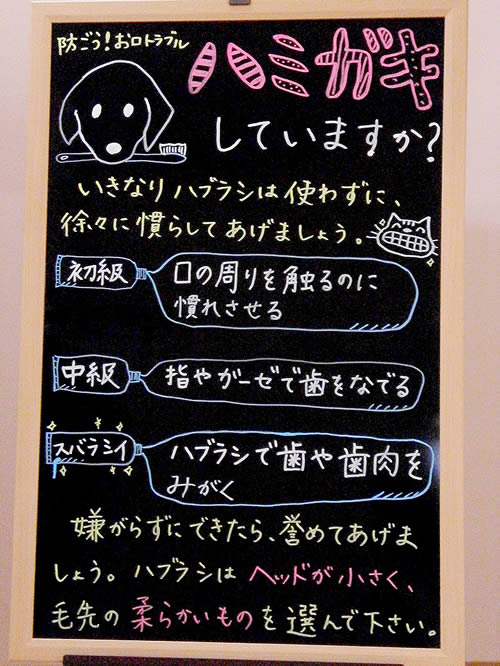 防ごう!お口トラブル
ハミガキ
していますか?
いきなりハブラシは使わずに、
徐々に慣らしてあげましょう。
初級
口の周りを触るのに
慣れさせる
中級
指やガーゼで歯をなでる
スバラシイ
ハブラシで歯や歯肉を
みがく
嫌がらずにできたら、誉めてあげま
しょう。ハブラシはヘッドが小さく、
毛先の柔らかいものを選んで下さい。